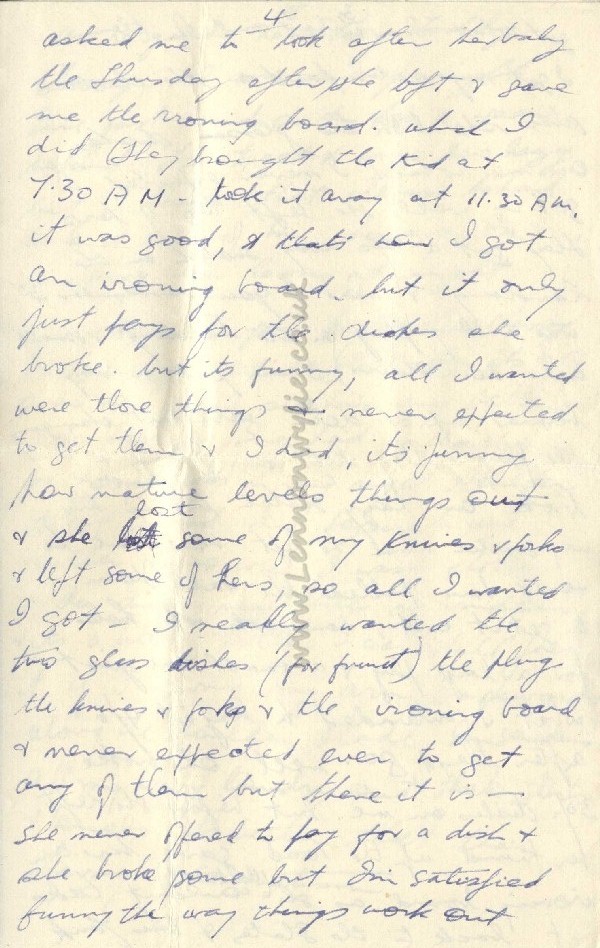 4
asked me to look after her baby
the Thursday after she left & gave
me the ironing board. which I
did (They brought the kid at
7.30 AM - took it away at 11.30 AM.
it was good, & thats how I got
an ironing board. but it only
just pays for the dishes she
broke. but its funny, all I wanted
were those things & never expected
to get them & I did, its funny
how nature levels things out
& she lost some of my knives & forks
& left some of hers, so all I wanted
I got - I really wanted the
two glass dishes (for fruit) the plug
the knives & forks & the ironing board
& never expected ever to get
any of them but there it is —
she never offered to pay for a dish &
she broke some but Im satisfied
funny the way things work out
www.Lennonwylie.co.uk